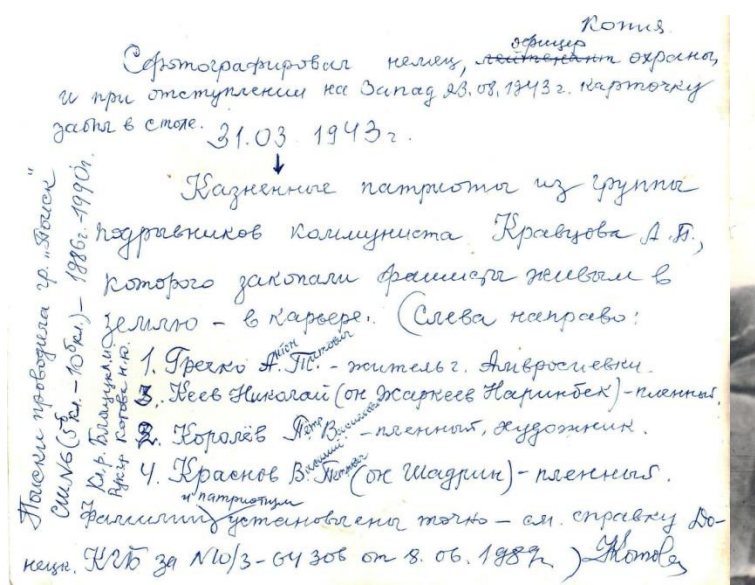 Копия.
офицер
Сфотографировал немец, лейтенант охраны,
и при отступлении на Запад 23.08.1943 г. карточку
забыл в столе.
31.03 1943 г.
Казненные патриоты из группы
подрывников коммуниста Кравцова А.П.,
которого закопали фашисты живым в
землю – в карьере. (Слева направо:
1. Гречко А. Т. – житель г. Амвросиевки.
3. Кеев Николай (он Жаркеев Наринбек) – пленный.
2. Королёв Пётр В – пленный, художник.
4. Краснов В. (он Шадрин) – пленный.
и патриотизм
Фамилии установлены точно – см. справку До-
нецк. КГБ за №10/3-64 306 от 8.06.1989 )
Поиски проводила гр. "Поиск"
СШ№6 (5б кл. – 10б кл.) – 1986 г.-1990 г.
Кл. р.
Рук. гр. Котова Н.Ю.